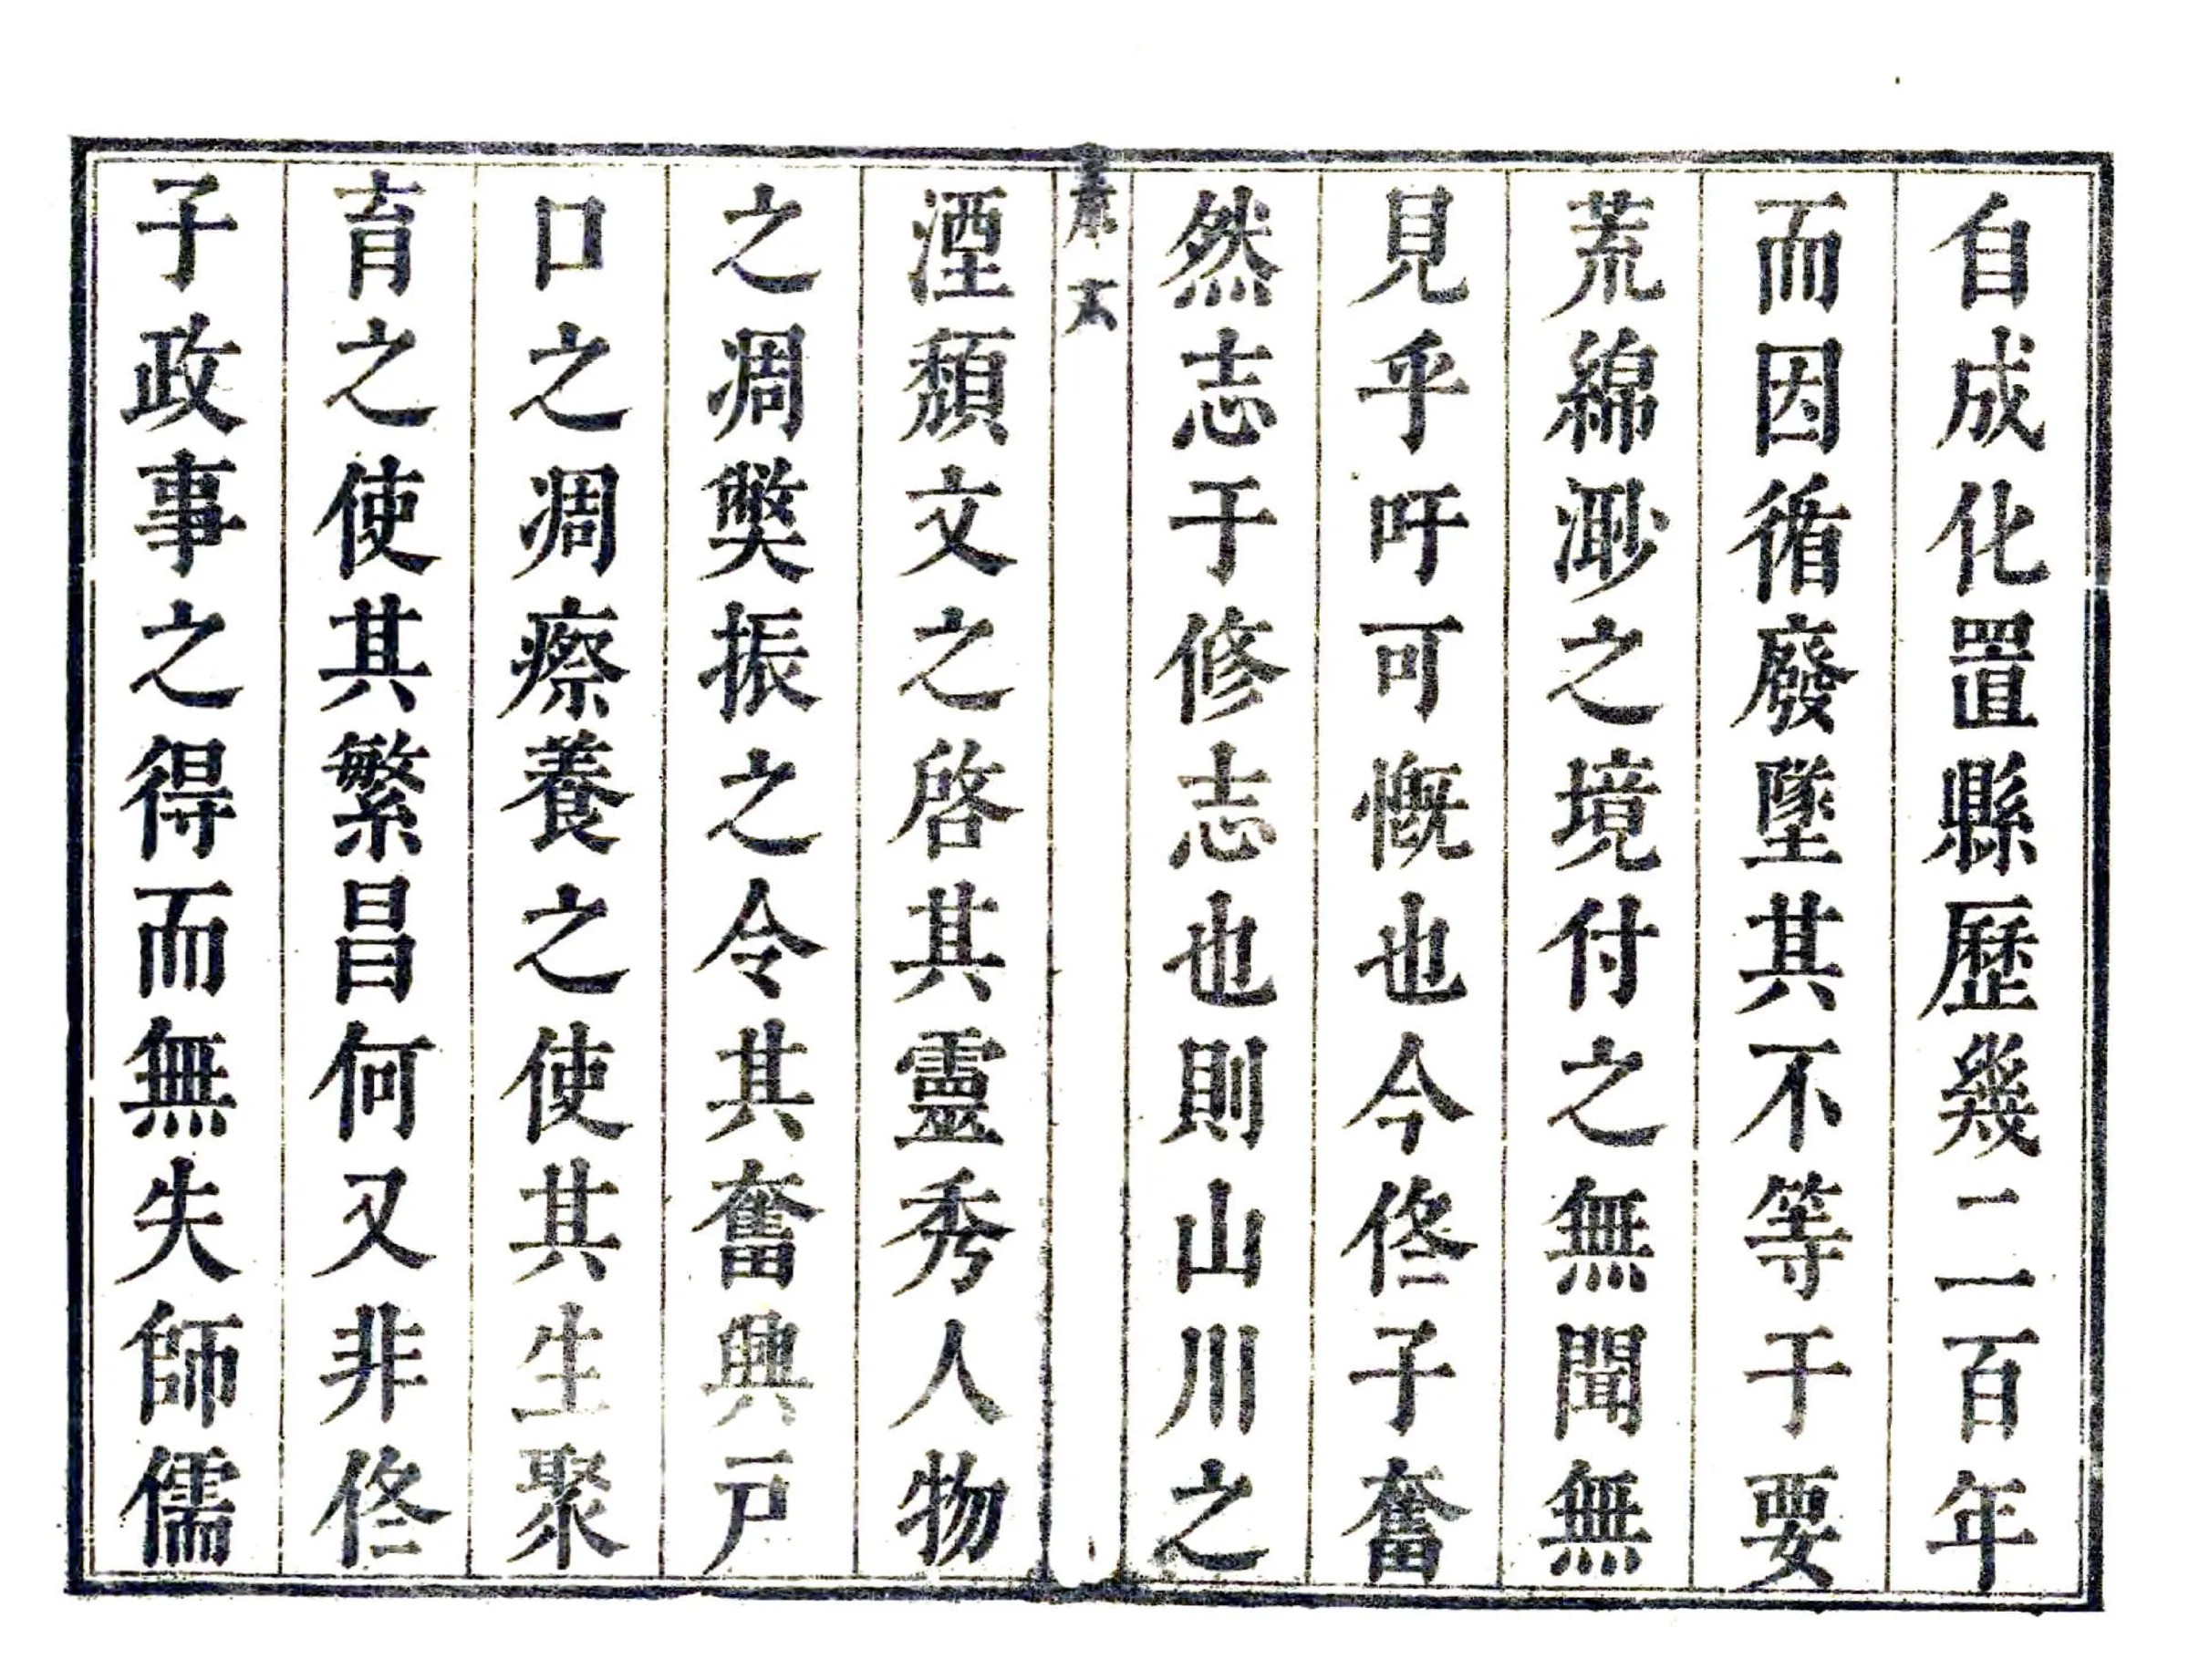 自成化置縣歷幾二百年
而因循廢墜其不等于要
荒綿渺之境付之無聞無
見乎吁可慨也今佟子奮
然志于修志也則山川之
湮頽文之啓其靈秀人物
之凋獘振之令其奮興戸
口之凋瘵養之使其生聚
育之使其繁昌何又非佟
子政事之得而無失師儒